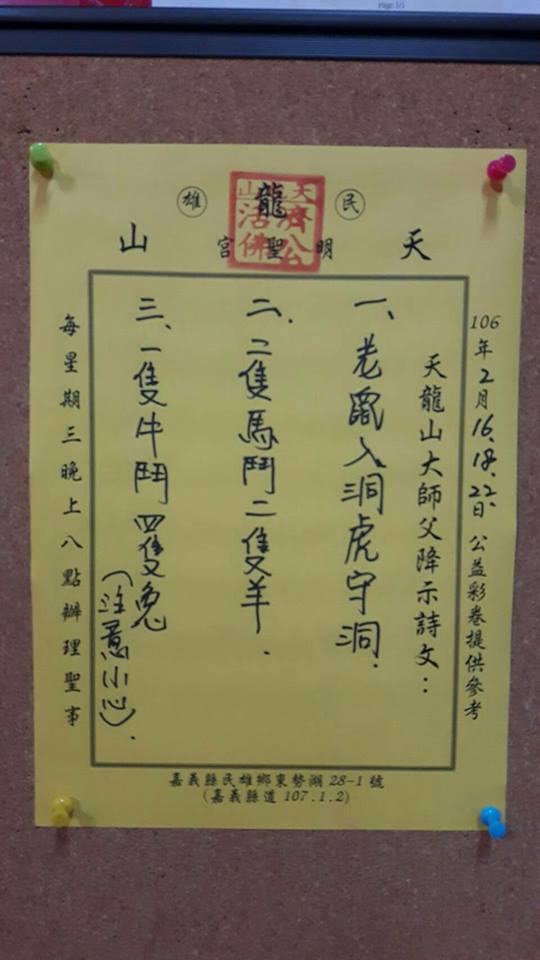 Page 1/1
民雄
天龍山
明聖宮
天濟公
山活佛
106年2月16.18.22.日 公益彩卷提供參考
天龍山大師父降示詩文：
一、老鼠入洞虎守洞.
二、二隻馬鬥二隻羊.
三、一隻牛鬥四隻兔
(注意小心).
每星期三晚上八點辦理聖事
嘉義縣民雄鄉東勢湖 28-1 號
(嘉義縣道 107.1.2)